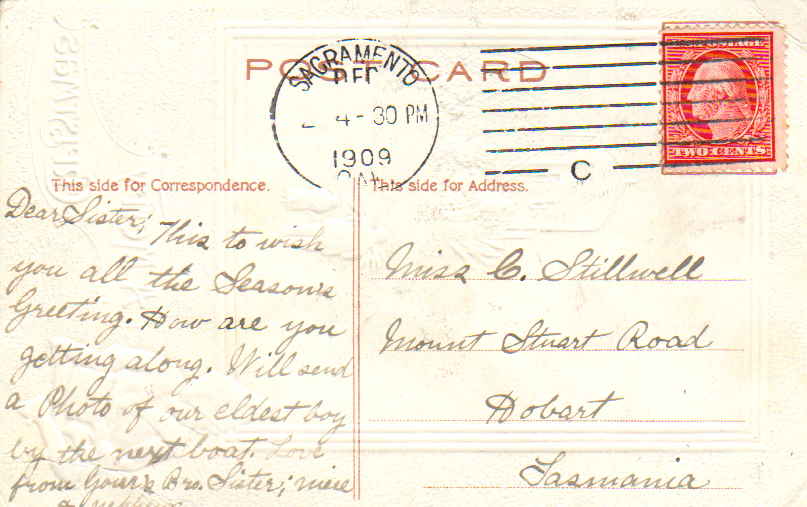 POST CARD
SACRAMENTO
DEC
4-30 PM
1909
CAL.
C
TWO CENTS
This side for Correspondence.
This side for Address.
Dear Sister;
This to wish
you all the Season's
Greeting. How are you
getting along. Will send
a Photo of our eldest boy
by the next boat. Love
from Your's Bro. Sister; niece
& nephew
Miss C. Stillwell
Mount Stuart Road
Hobart
Tasmania